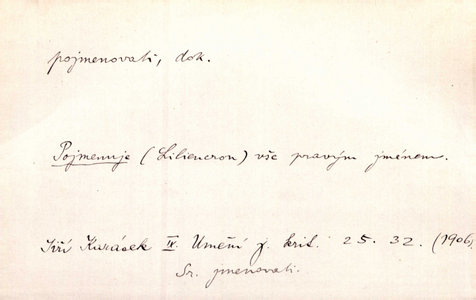 pojmenovati, dok.
Pojmenuje (Liliencron) vše pravým jménem.
Jiří Karásek IV. Umění j. krit. 25. 32. (1906)
Sr. jmenovati.